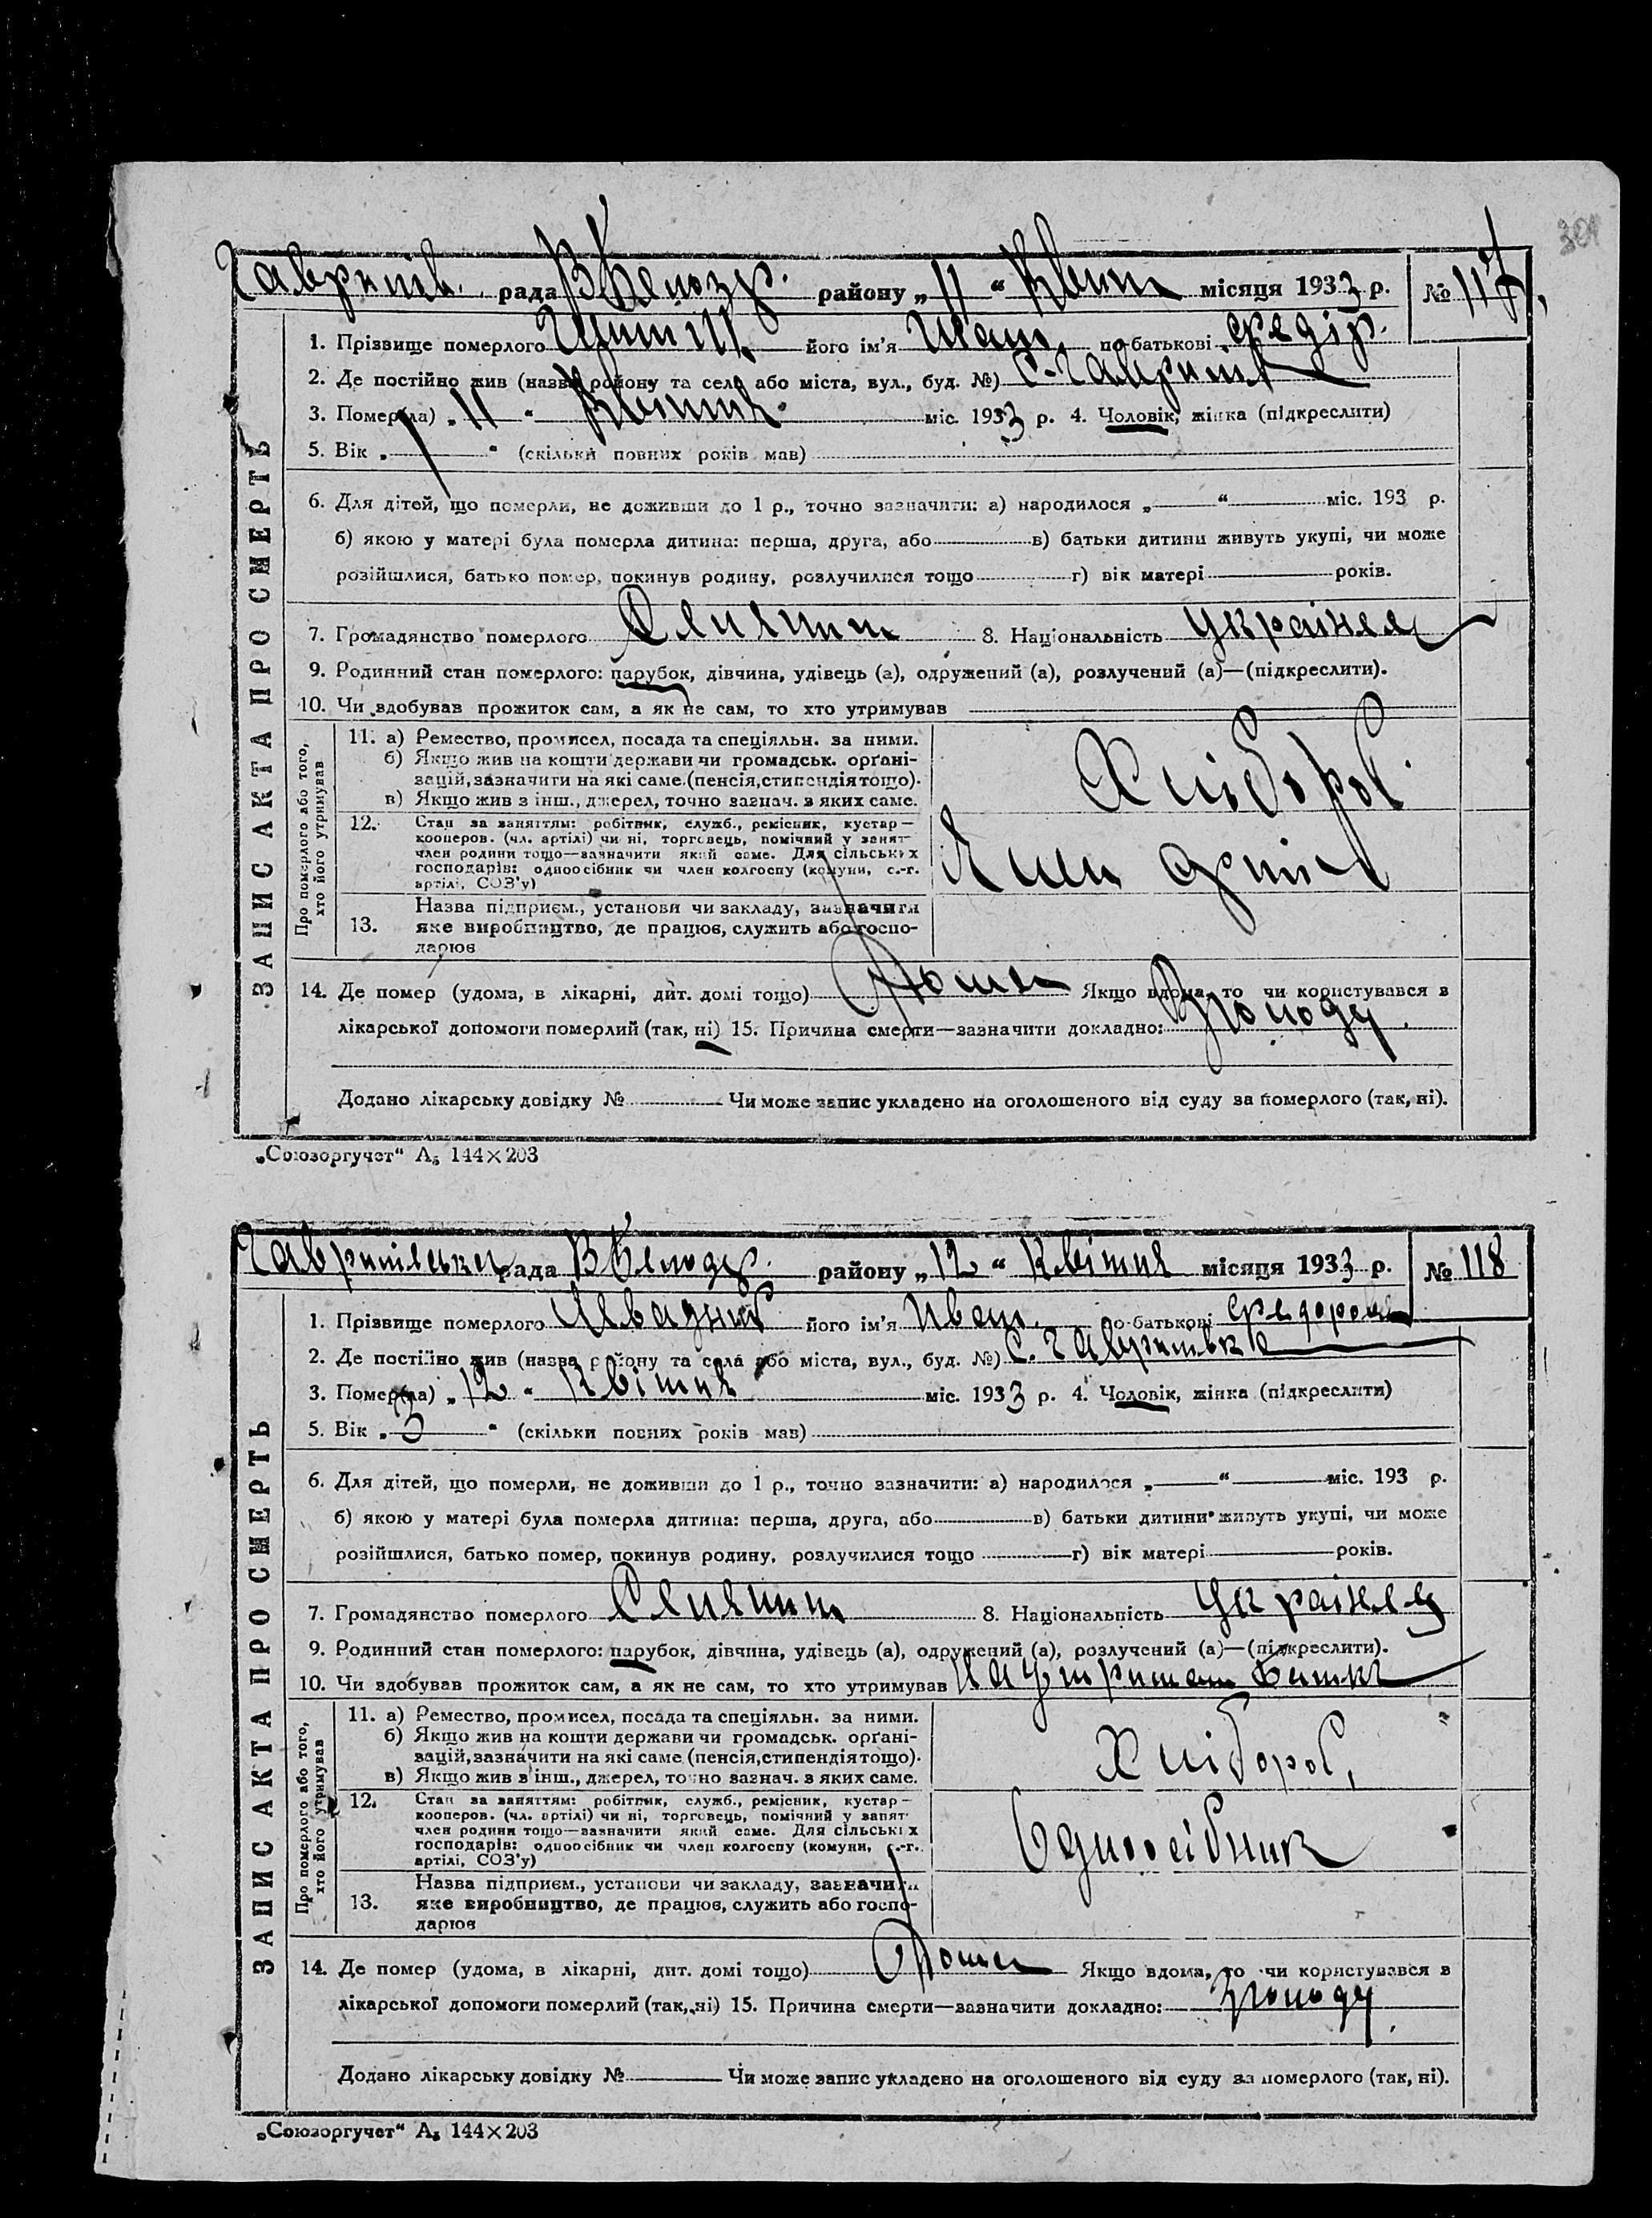 301
рада району „11“ місяця 1933 р. № 117
1. Прізвище померлого його ім'я Иван по-батькові Федір.
2. Де постійно жив (назва району та села або міста, вул., буд. №) с.
3. Помер(ла) „11“ Квітня міс. 1933 р. 4. Чоловік, жінка (підкреслити)
5. Вік „1“ (скільки повних років мав)
6. Для дітей, що померли, не доживши до 1 р., точно зазначити: а) народилося „ “ міс. 193 р.
б) якою у матері була померла дитина: перша, друга, або в) батьки дитини живуть укупі, чи може
розійшлися, батько помер, покинув родину, розлучилися тощо г) вік матері років.
7. Громадянство померлого Селянин 8. Національність Українец
9. Родинний стан померлого: парубок, дівчина, удівець (а), одружений (а), розлучений (а)—(підкреслити).
10. Чи здобував прожиток сам, а як не сам, то хто утримував
ЗАПИС АКТА ПРО СМЕРТЬ
Про померлого або того, хто його утримував
11. а) Ремество, промисел, посада та спеціяльн. за ними.
б) Якщо жив на кошти держави чи громадськ. орґані-
зацій, зазначити на які саме (пенсія, стипендія тощо).
в) Якщо жив з інш., джерел, точно зазнач. з яких саме.
Хлібороб
12. Стан за заняттям: робітник, служб., ремісник, кустар—
кооперов. (чл. артілі) чи ні, торговець, помічний у занят
член родини тощо—зазначити який саме. Для сільських
господарів: одноосібник чи член колгоспу (комуни, с.-г.
артілі, СОЗ'у)
13. Назва підприєм., установи чи закладу, зазначити
яке виробництво, де працює, служить або госпо-
дарює
14. Де помер (удома, в лікарні, дит. домі тощо) Дома Якщо вдома, то чи користувався з
лікарської допомоги померлий (так, ні) 15. Причина смерти—зазначити докладно: Зголоду
Додано лікарську довідку № Чи може запис укладено на оголошеного від суду за померлого (так, ні).
„Союзоргучет“ А₅ 144×203
Гавриліська рада району „12“ Квітня місяця 1933 р. № 118
1. Прізвище померлого його ім'я Иван по-батькові Федоров
2. Де постійно жив (назва району та села або міста, вул., буд. №) с.
3. Помер(ла) „12“ Квітня міс. 1933 р. 4. Чоловік, жінка (підкреслити)
5. Вік „3“ (скільки повних років мав)
6. Для дітей, що померли, не доживши до 1 р., точно зазначити: а) народилося „ “ міс. 193 р.
б) якою у матері була померла дитина: перша, друга, або в) батьки дитини живуть укупі, чи може
розійшлися, батько помер, покинув родину, розлучилися тощо г) вік матері років.
7. Громадянство померлого Селянин 8. Національність Українец
9. Родинний стан померлого: парубок, дівчина, удівець (а), одружений (а), розлучений (а)—(підкреслити).
10. Чи здобував прожиток сам, а як не сам, то хто утримував
ЗАПИС АКТА ПРО СМЕРТЬ
Про померлого або того, хто його утримував
11. а) Ремество, промисел, посада та спеціяльн. за ними.
б) Якщо жив на кошти держави чи громадськ. орґані-
зацій, зазначити на які саме (пенсія, стипендія тощо).
в) Якщо жив з інш., джерел, точно зазнач. з яких саме.
Хлібороб,
12. Стан за заняттям: робітник, служб., ремісник, кустар—
кооперов. (чл. артілі) чи ні, торговець, помічний у занят
член родини тощо—зазначити який саме. Для сільських
господарів: одноосібник чи член колгоспу (комуни, с.-г.
артілі, СОЗ'у)
Одноосібник
13. Назва підприєм., установи чи закладу, зазначити
яке виробництво, де працює, служить або госпо-
дарює
14. Де помер (удома, в лікарні, дит. домі тощо) Дома Якщо вдома, то чи користувався з
лікарської допомоги померлий (так, ні) 15. Причина смерти—зазначити докладно: Зголоду
Додано лікарську довідку № Чи може запис укладено на оголошеного від суду за померлого (так, ні).
„Союзоргучет“ А₅ 144×203